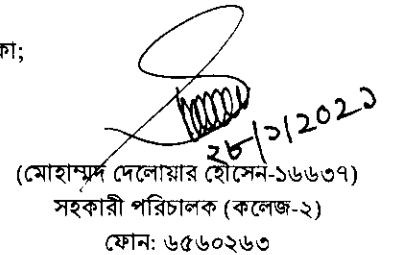 কা;
২৮/১/202১
(মোহাম্মদ দেলোয়ার হোসেন-১৬৬৩৭)
সহকারী পরিচালক (কলেজ-২)
ফোন: ৬৫৬০২৬৩